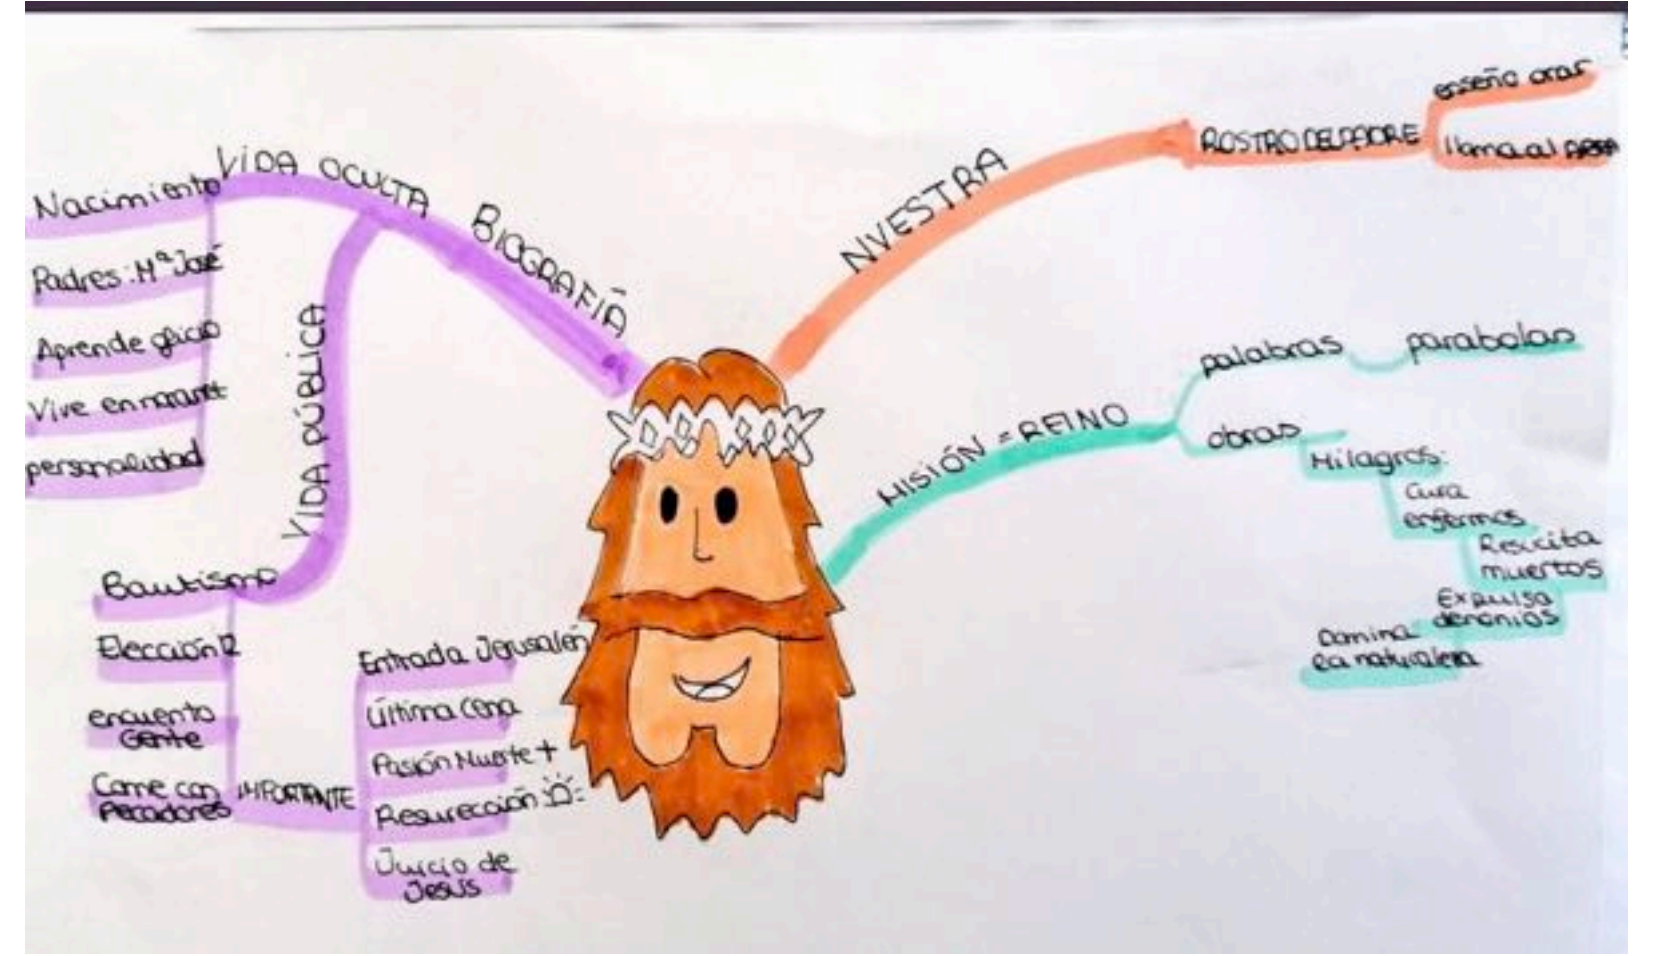 BIOGRAFIÁ
VIDA OCULTA
Nacimiento
Padres: Mª José
Aprende oficio
Vive en nazaret
personalidad
VIDA PÚBLICA
Bautismo
Elección 12
encuento
Gente
Come con
Pecadores
IMPORTANTE
Entrada Jerusalén
Última cena
Pasión Muerte +
Resurección
Juicio de
Jesús
NVESTRA
ROSTRO DEL PADRE
enseño orar
llama al
MISIÓN = REINO
palabras
parabolas
obras
Milagros:
Cura
enfermos
Resicita
muertos
Expulsa
demonios
Domina
la naturaleza